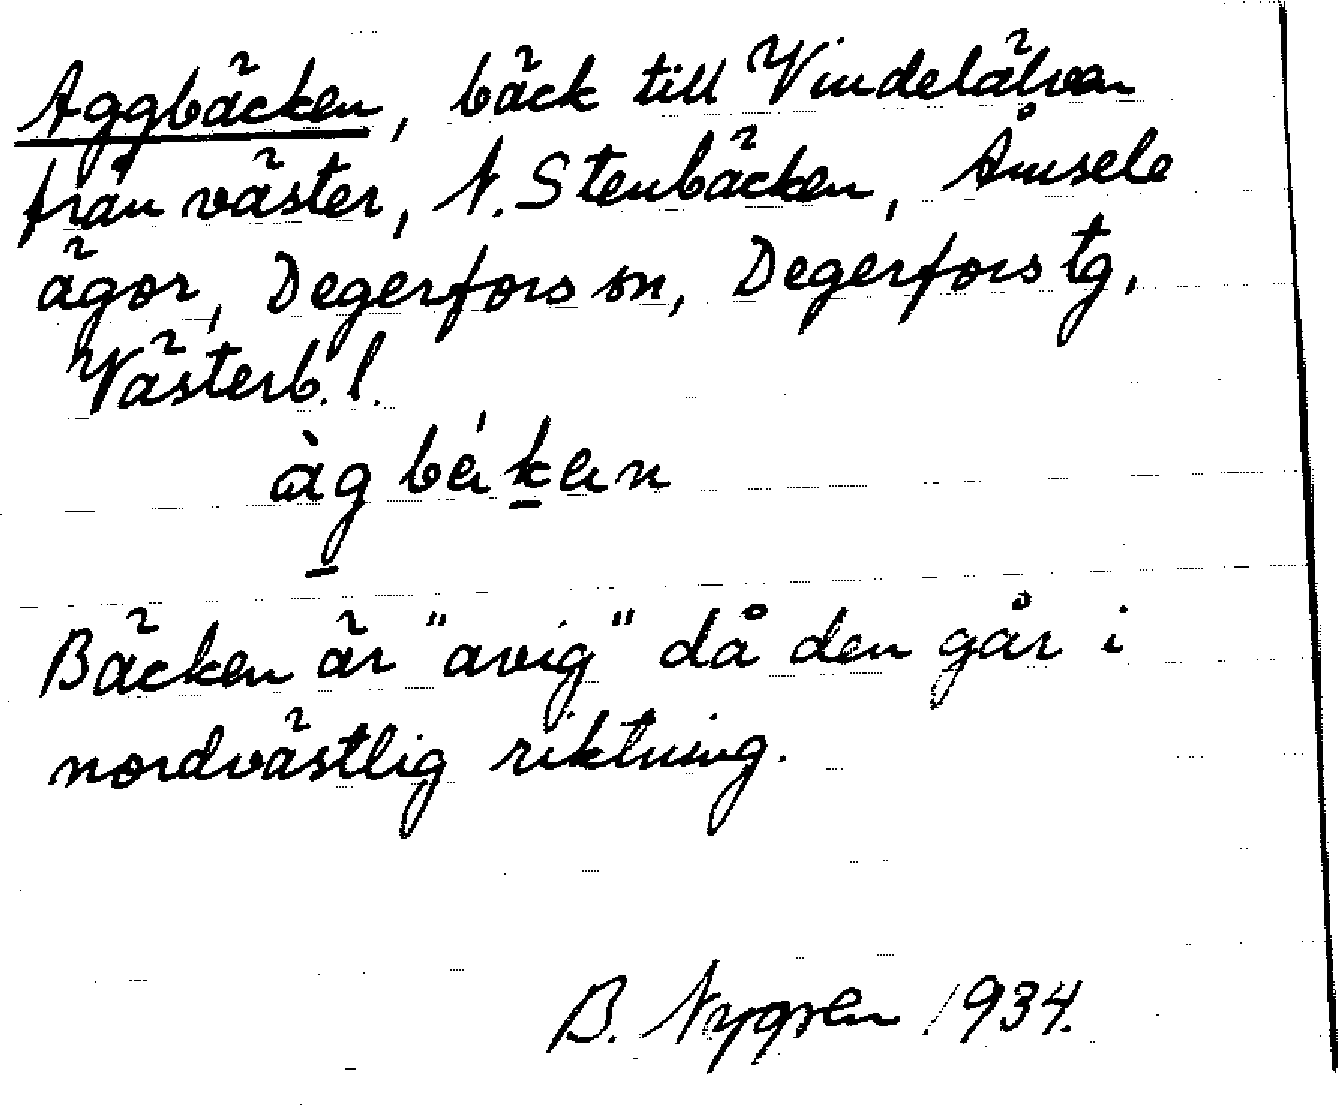 Aggbäcken, bäck till Vindelälven
från väster, N. Stenbäcken, Åmsele
ägor, Degerfors sn, Degerfors tg,
Västerb. l.
àg béken
Bäcken är "avig" då den går i
nordvästlig riktning.
B. Nygren 1934.